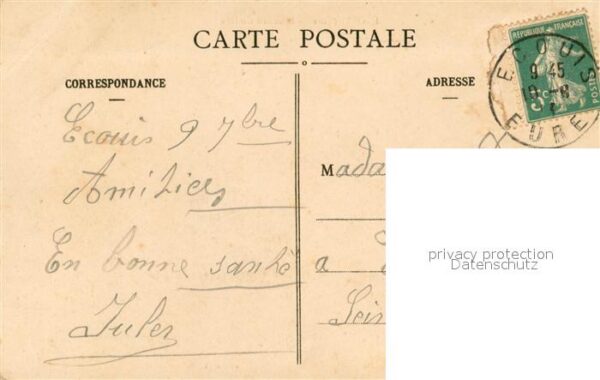 CARTE POSTALE
CORRESPONDANCE
ADRESSE
RÉPUBLIQUE FRANÇAISE
POSTES
ECOUIS
9 45
EURE
Ecouis 9 7bre
Amitiés
En bonne santé
Jules
Mada
a
Sein
privacy protection
Datenschutz